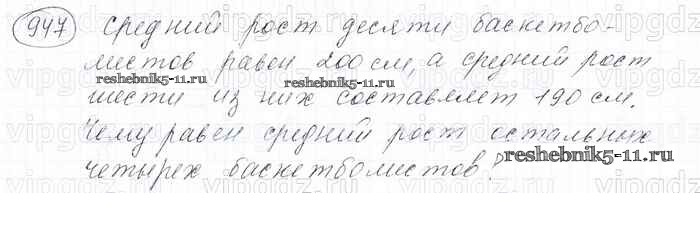 947 Средний рост десяти баскетбо-
листов равен 200 см, а средний рост
reshebnik5-11.ru
шести из них составляет 190 см.
Чему равен средний рост остальных
четырех баскетболистов?
reshebnik5-11.ru